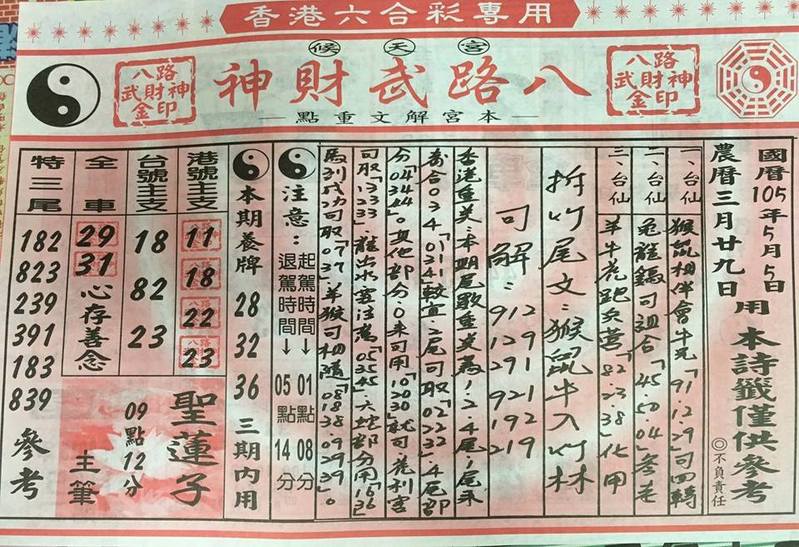 香港六合彩專用
候天宮
八路武財神
八路武財神金印
八路武財神金印
本宮解文重點
國曆105年5月5日
農曆三月廿九日
用本詩籤僅供參考
◎不負責任
一、台仙 猴鼠相伴會牛兄「91.12.29」可四轉
二、台仙 兔龍鑼可組合「45.50.04」
三、台仙 羊牛花跑兵營「82.23.38」化甲
拆竹尾文:猴鼠牛入竹林
可解:
912
129
291
921
192
219
香港重美:本期尾數重美為1.2.4尾.1尾來
配合034「0134較宜.2尾可取「02232」4尾部
分「04344」。其他部分:0來可用「102030」就可
可取「13233」龍出水要注意「053545」六蛇部分用「1636」
成功可取「0737」羊猴可相隨「081838 09 29 39」。
注意:
起駕時間→01點08分
退駕時間→05點14分
本期養牌 28 32 36 三期內用
港號主支
11
18
22
23
台號主支
18
82
23
全車
29
31
心存善念
聖蓮子
09點12分
主筆
特三尾
182
823
239
391
183
839
參考